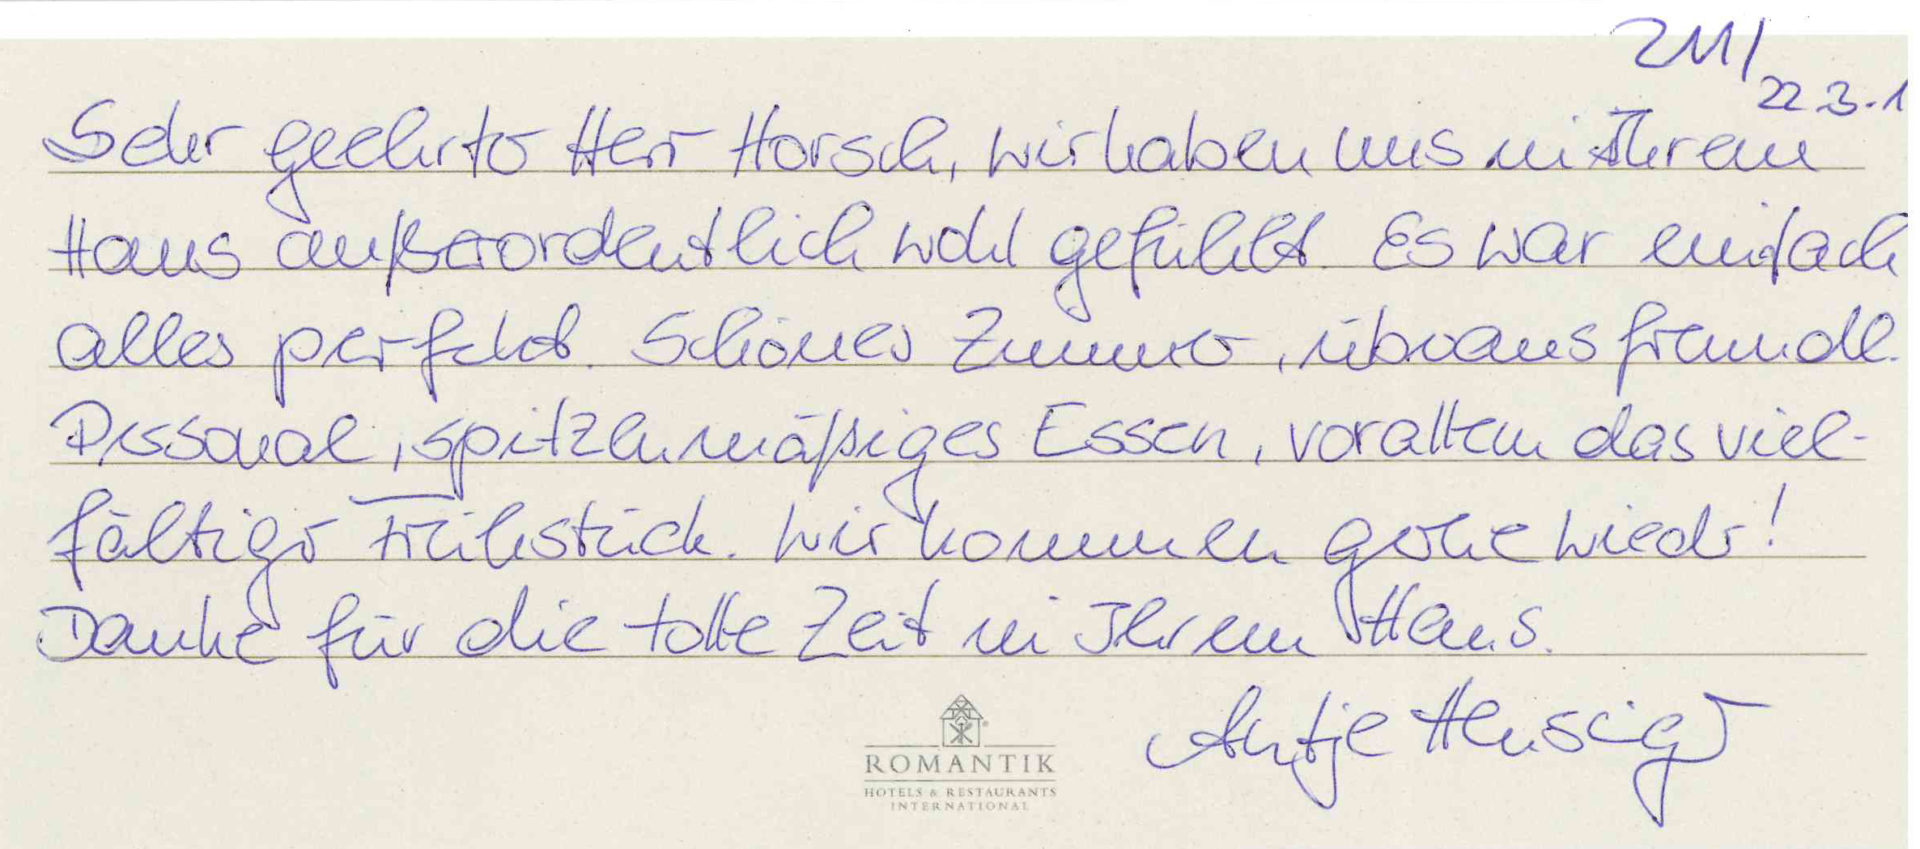 211/
22.3.1
Sehr geehrter Herr Horsch, wir haben uns in Ihrem
Haus außerordentlich wohl gefühlt. Es war einfach
alles perfekt. Schönes Zimmer, überaus freundl.
Personal, spitzenmäßiges Essen, vorallem das viel-
fältige Frühstück. Wir kommen gerne wieder!
Danke für die tolle Zeit in Ihrem Haus.
Antje
ROMANTIK
HOTELS & RESTAURANTS
INTERNATIONAL